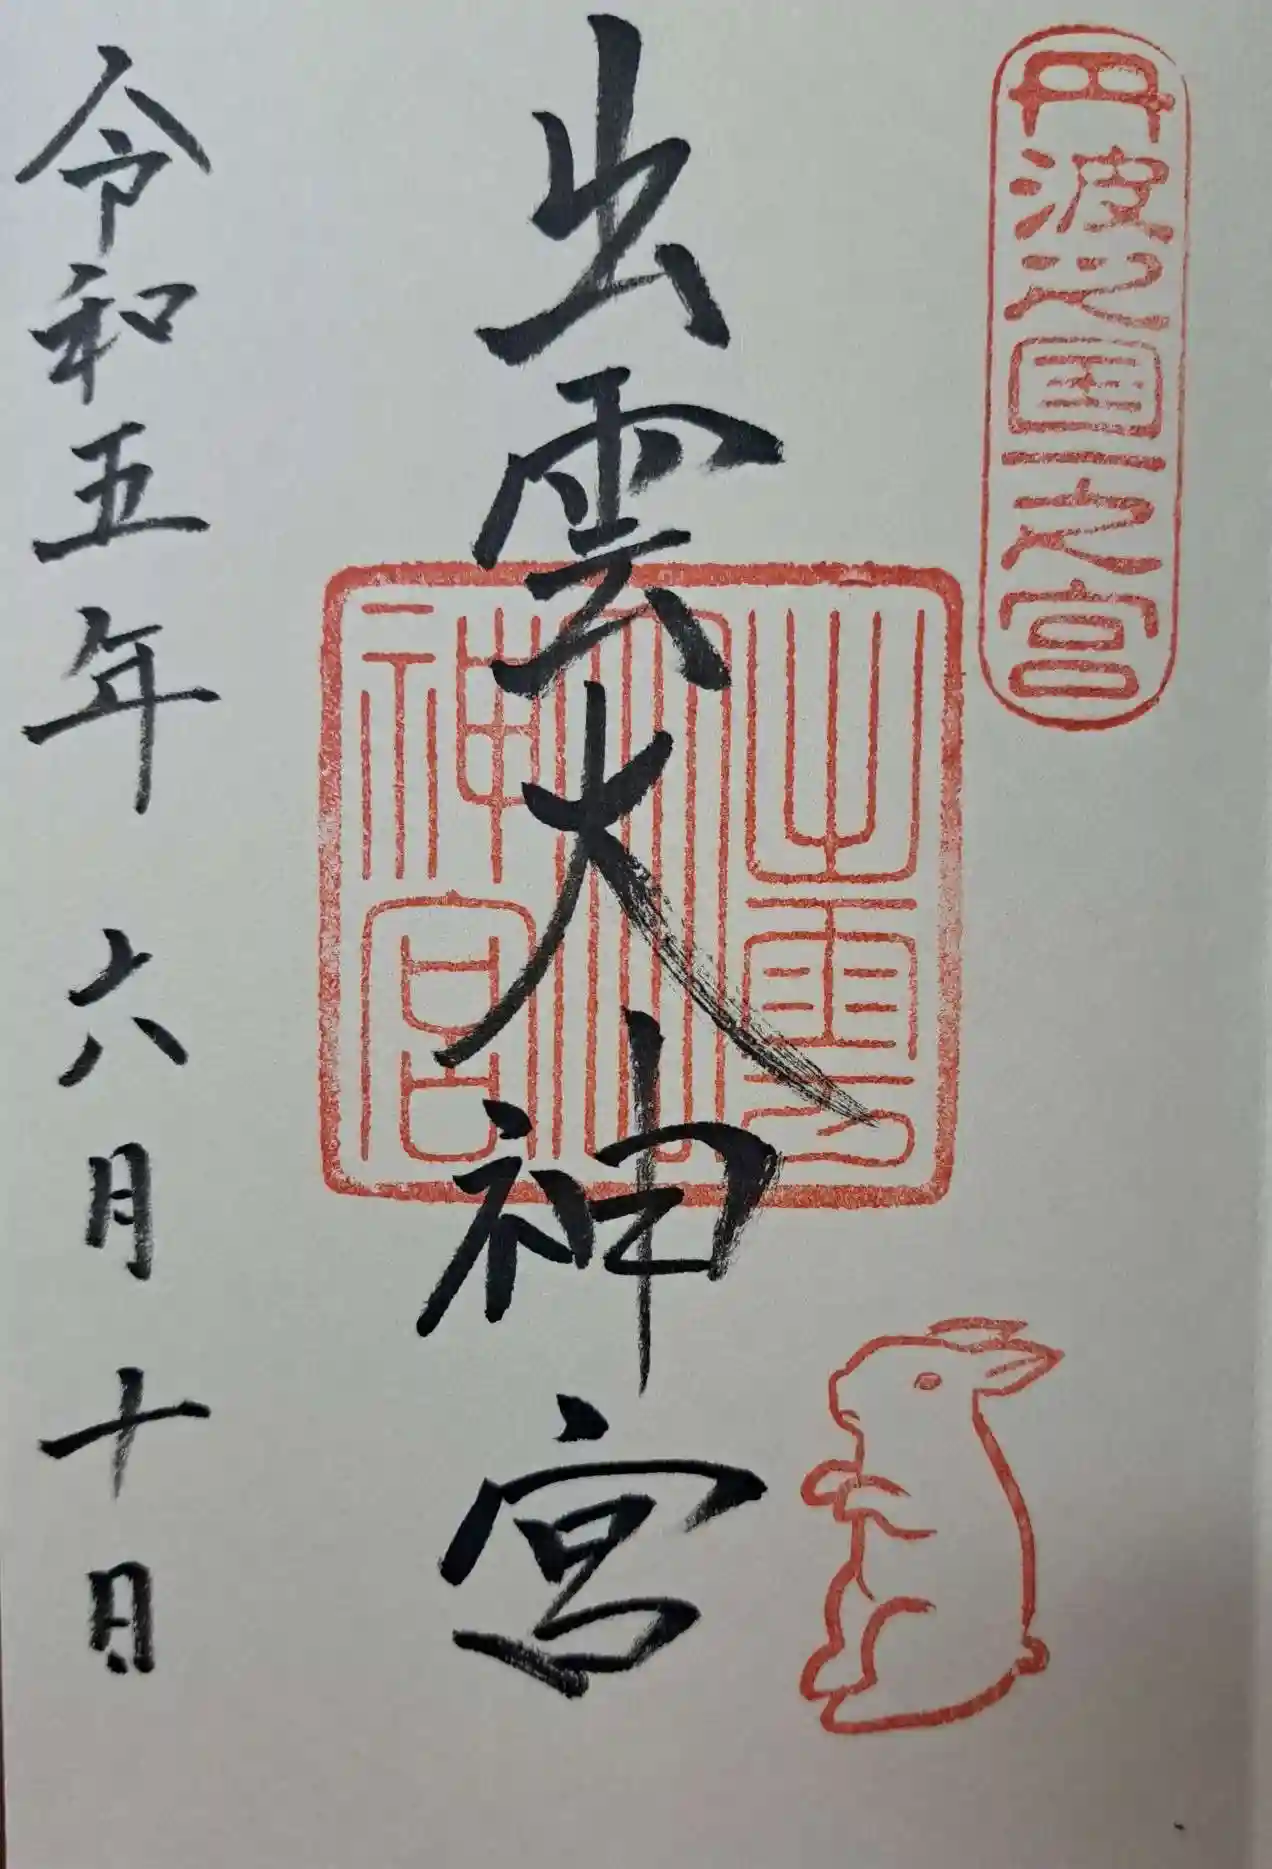 丹波之国一之宮
出雲大神宮
出雲大神宮
令和五年 六月 十日